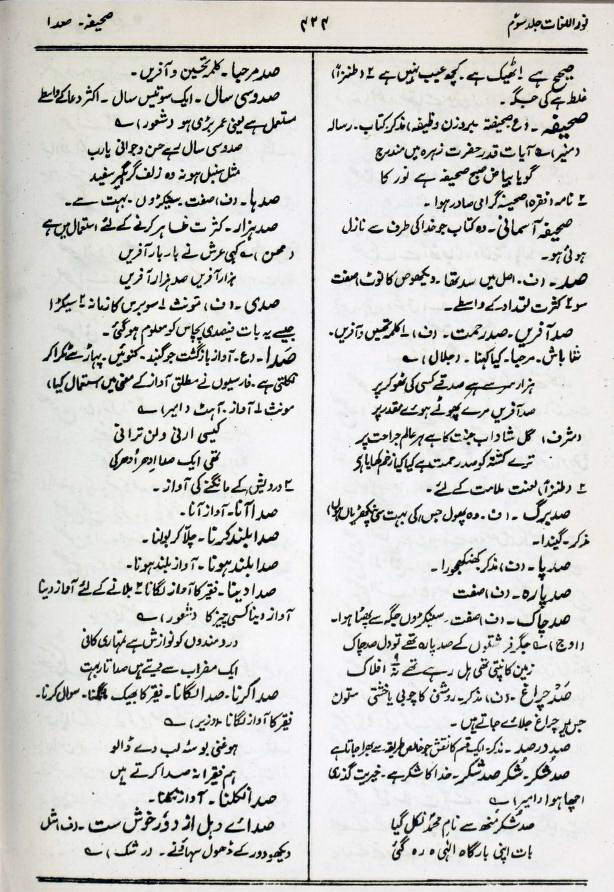 نور اللغات جلد سوم
۴۲۴
صحیفہ - صدا
صحیح ہے ! ٹھیک ہے۔ کچھ عیب نہیں ہے ۲ (طنزاً)
غلط ہے کی جگہ۔
صحیفہ - (ع) صحیفتہ بروزن وظیفہ) مذکر کتاب۔ رسالہ
(منیر) ے آیات قدر حضرت زہرہ میں مندرج
گویا بیاض صبح صحیفہ ہے نور کا
۲ نامہ (فقرہ) صحیفہ گرامی صادر ہوا۔
صحیفہ آسمانی - وہ کتاب جو خدا کی طرف سے نازل
ہوئی ہو۔
صد - (ف) اصل میں سد تھا۔ دیکھو ص کا نوٹ) صفت
سو ۲ کثرت تعداد کے واسطے۔
صد آفریں - صد رحمت - (ف) ۱ کلمہ تحسیں و آفریں۔
شاباش۔ مرحبا۔ کیا کہنا۔ (جلال) ے
ہزار سر سے ہے صدقے کسی کی ٹھوکر پر
صد آفریں مرے پھوٹے ہوئے مقدر پر
(شرف) گل شاداب جنت کا ہے ہر عالم جراحت پر
ترے کشتہ کو صد رحمت ہے کیا کیا زخم کھایا ہے
۲ (طنزاً) لعنت ملامت کے لئے۔
صد برگ - (ف) وہ پھول جس کی بہت سی پنکھڑیاں ہوں)
مذکر۔ گیندا۔
صد پا - (ف) مذکر کنکھجورا۔
صد پارہ - (ف) صفت
صد چاک - (ف) صفت۔ سیکڑوں جگہ سے پھٹا ہوا۔
(اوج) ے جگر فرشتوں کے صد پارہ تھے تو دل صد چاک
زمین کانپتی تھی ہل رہے تھے نہ افلاک
صد چراغ - (ف) مذکر۔ روشنی کا چوبی یا خشتی ستون
جس پر چراغ جلائے جاتے ہیں۔
صد در صد - مذکر۔ ایک قسم کا نقش جو خاص طریقہ سے بھرا جاتا ہے
صد شکر - شکر صد شکر - خدا کا شکر ہے۔ خیریت گذری
اچھا ہوا (امیر) ے
صد شکر منھ سے نام محمدؐ نکل گیا
بات اپنی بارگاہ الٰہی میں رہ گئی
صد مرحبا - کلمہ تحسین و آفریں۔
صد و سی سال - ایک سو تیس سال۔ اکثر دعا کے واسطے
مستعمل ہے یعنی عمر بڑی ہو (شعور) ے
صد و سی سال رہے حسن و جوانی یارب
مثل سنبل ہو نہ وہ زلف گرہ گیر سفید
صدہا - (ف) صفت۔ سیکڑوں۔ بہت سے۔
صد ہزار - کثرت ظاہر کرنے کے لئے استعمال میں ہے
(محسن) ے کہی عرش نے بار بار آفریں
ہزار آفریں صد ہزار آفریں
صدی - (ف) مونث ۱ سو برس کا زمانہ ۲ سیکڑا
جیسے یہ بات فیصدی پچاس کو معلوم ہو گئی۔
صدا - (ع) آواز بازگشت جو گنبد۔ کنوئیں۔ پہاڑ سے ٹکرا کر
نکلتی ہے۔ فارسیوں نے مطلق آواز کے معنی میں استعمال کیا)
مونث ۱ آواز۔ آہٹ (امیر) ے
کیسی ارنی و لن ترانی
تھی ایک صدا ادھر اُدھر کی
۲ درویش کے مانگنے کی آواز۔
صدا آنا - آواز آنا۔
صدا بلند کرنا - چلّا کر بولنا۔
صدا بلند ہونا - آواز بلند ہونا۔
صدا دینا - فقیر کا آواز لگانا ۲ بلانے کے لئے آواز دینا
آواز دینا کسی چیز کا (شعور) ے
دردمندوں کو نوازش ہے تمہاری کافی
ایک مضراب سے دیتے ہیں صدا تار بہت
صدا کرنا - صدا لگانا - فقیر کا بھیک مانگنا۔ سوال کرنا۔
فقیر کا آواز لگانا (وزیر) ے
ہو غنی بوسۂ لب دے ڈالو
ہم فقیرانہ صدا کرتے ہیں
صدا نکلنا - آواز نکلنا۔
صدائے دہل از دور خوش ست - (ف) مثل
دیکھو دور کے ڈھول سہانے۔ (رشک) ے